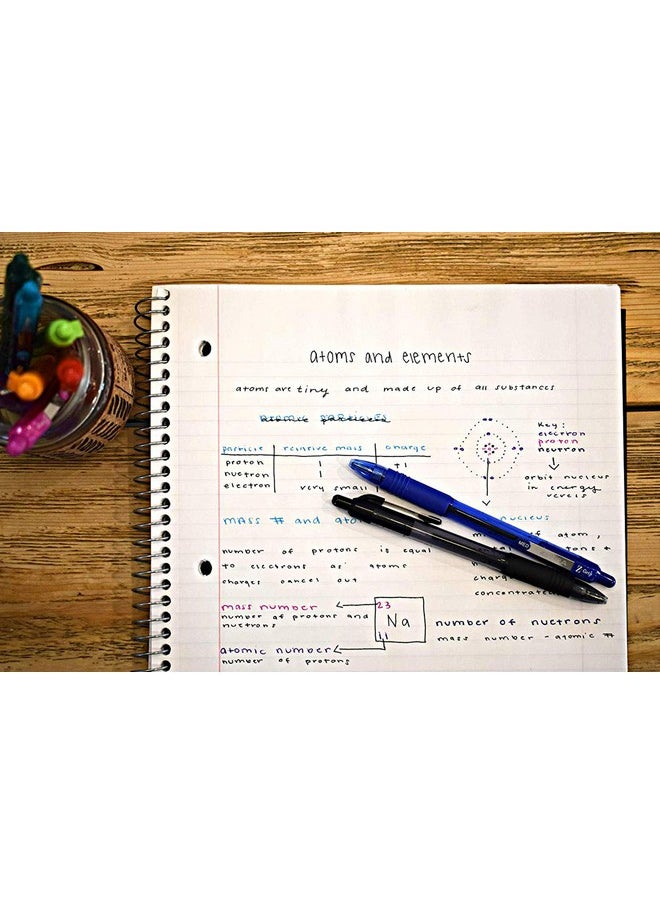 atoms and elements
atoms are tiny and made up of all substances
atomic particles
particle relative mass charge
proton 1 +1
nuetron 1
electron very small
Key:
electron
proton
neutron
orbit nucleus
in energy
levels
mass # and
nucleus
number of protons is equal
to electrons as atoms
charges cancel out
of atom,
concentrated
mass number
number of protons and
nuetrons
23
Na
11
atomic number
number of protons
number of nuetrons
mass number - atomic #
MED
Z Grip